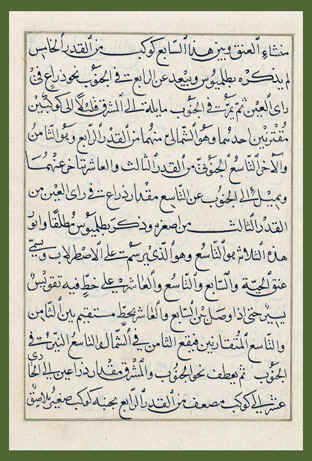 منشاء العنق وبين هذا السابع كوكب من القدر الخامس
لم يذكره بطلميوس ويبعد عن الرابع في الجنوب نحو ذراع في
راى العين ثم يمر في الجنوب مايلة الى الشرق قليلا الى كوكبين
مقترنين احدهما وهو الشمالى منهما من القدر الرابع وهو الثامن
والآخر التاسع الجنوبى من القدر الثالث والعاشر تاخر عنهما
ويميل الى الجنوب عن التاسع مقدار ذراع في راى العين من
القدر الثالث من صغره وذكر بطلميوس مطلقا وانور
هذه الثلاثة هو التاسع وهو الذى يرسم على الاصطرلاب ويسمى
عنق الحية والسابع والتاسع والعاشر على خط فيه تقويس
يسير حتى اذا وصل بين السابع والعاشر بخط مستقيم بين الثامن
والتاسع المتقاربين فيقع الثامن في الشمال والتاسع النير في
الجنوب ثم يعطف نحو الجنوب والمشرق مقدار ذراعين الى الحادى
عشر الى كوكب مضعف من القدر الرابع بجنبه كوكب صغير يلاصق